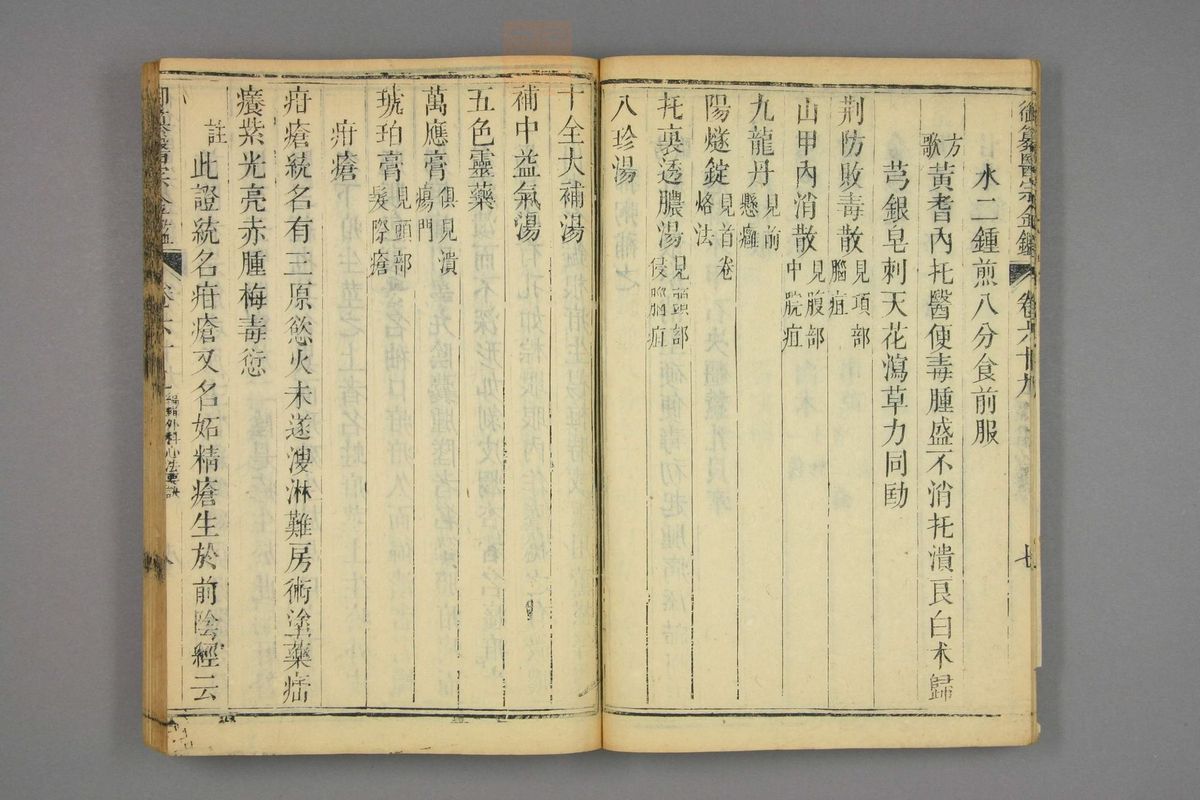 御纂醫宗金鑑 卷六十九 七
水二鍾煎八分食前服
方歌 黃耆內托醫便毒腫盛不消托潰良白朮歸
芎銀皂刺天花瀉草力同勷
荆防敗毒散 見項部腦疽
山甲內消散 見腹部中脘疽
九龍丹 見前懸癰
陽燧錠 見首卷烙法
托裏透膿湯 見頭部侵腦疽
八珍湯
十全大補湯
補中益氣湯
五色靈藥
萬應膏 俱見潰瘍門
琥珀膏 見頭部髮際瘡
疳瘡
疳瘡統名有三原慾火未遂溲淋難房術塗藥瘙
癢紫光亮赤腫梅毒愆
註 此證統名疳瘡又名妬精瘡生於前陰經云
御纂醫宗金鑑 卷六十九 編輯外科心法要訣 八